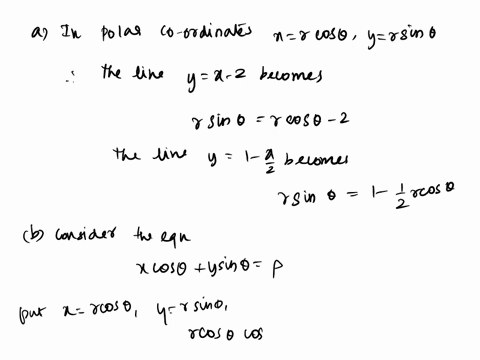 a) In polar co-ordinates x=rcosθ, y=rsinθ
∴ the line y=x-2 becomes
rsinθ = rcosθ-2
the line y = 1-x/2 becomes
rsinθ = 1-1/2 rcosθ
(b) consider the eqn
xcosθ+ysinθ=p
put x=rcosθ, y=rsinθ,
rcosθ cos